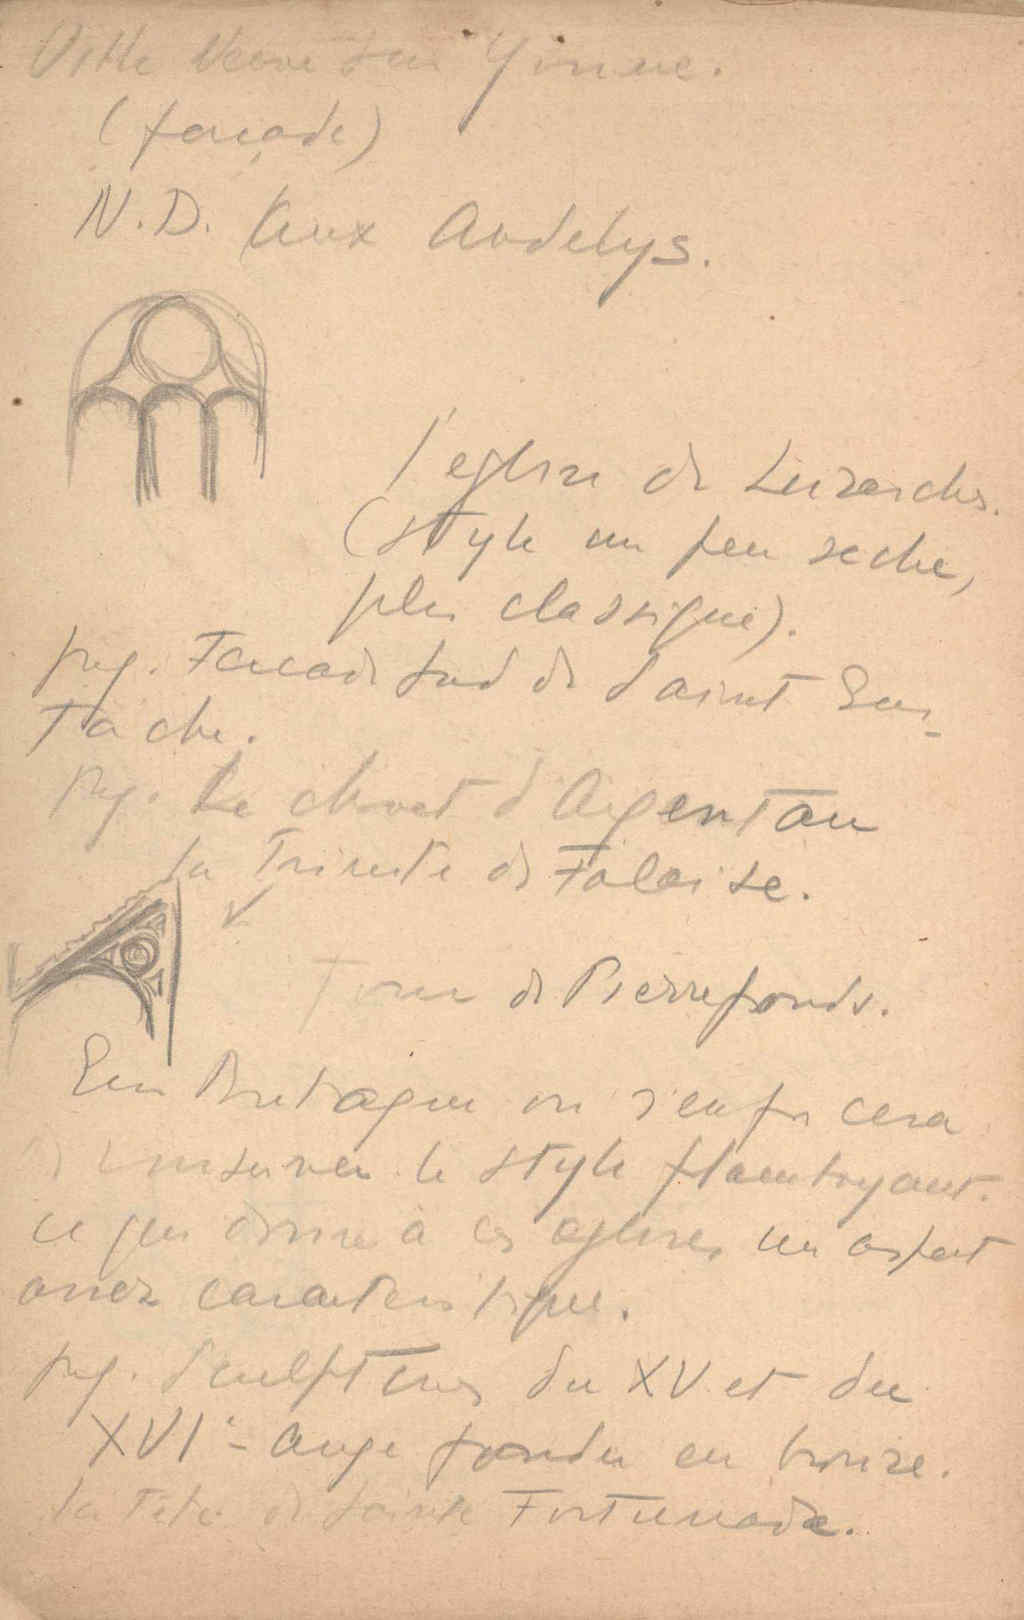 Ville Neuve sur Yonne.
(façade)
N.D. (aux Andelys.
l'eglise de Luzarches.
(style un peu seche,
plus classique).
proj. Facade sud de Saint Eus-
tache.
proj. Le chevet d'Argentan
la Trinité de Falaise.
Tour de Pierrefonds.
En Bretagne on s'efforcera
de conserver le style flamboyant.
ce qui donne à ces eglises un aspect
assez caracteristique.
proj. Sculptures du XV et du
XVIe - ange fondu en bronze.
la Tete de Sainte Fortunade.